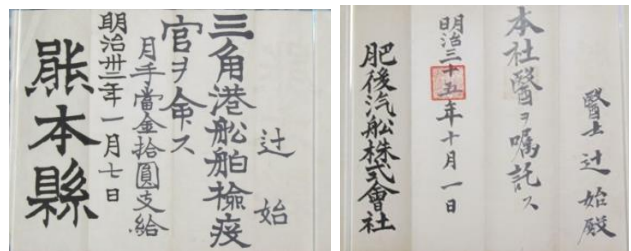 辻 始
三角港船舶檢疫
官ヲ命ス
月手當金拾圓支給
明治卅二年一月七日
熊本縣
醫士 辻 始殿
本社醫ヲ嘱託ス
明治三十五年十月一日
肥後汽船株式會社